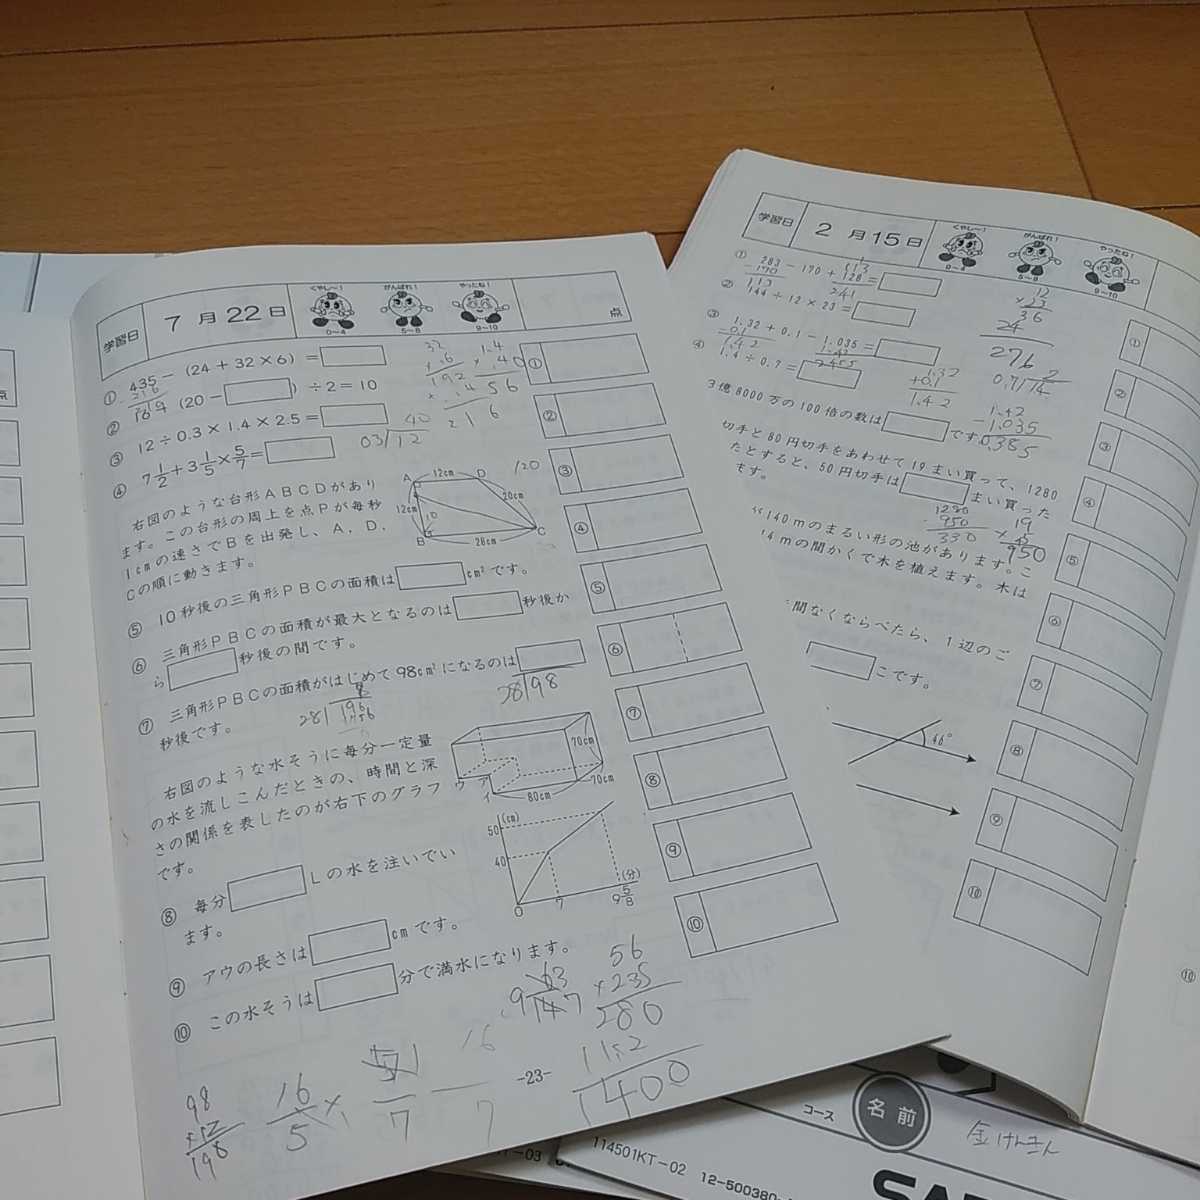 学習日 7月22日
くやし〜! がんばれ! やったね!
0〜4 5〜8 9〜10
点
① 435−(24+32×6)=
② (20− )÷2=10
③ 12÷0.3×1.4×2.5=
④ 7 1/2+3 1/5×5/7=
右図のような台形ABCDがあり
ます。この台形の周上を点Pが毎秒
1cmの速さでBを出発し、A、D、
Cの順に動きます。
A 12cm D
12cm 20cm
B 28cm C
⑤ 10秒後の三角形PBCの面積は cm²です。
⑥ 三角形PBCの面積が最大となるのは 秒後か
ら 秒後の間です。
⑦ 三角形PBCの面積がはじめて98cm²になるのは
秒後です。
右図のような水そうに毎分一定量
の水を流しこんだときの、時間と深
さの関係を表したのが右下のグラフ
です。
70cm
70cm
80cm
ウ ア イ
(cm)
50
40
0 7 9 5/8 (分)
⑧ 毎分 Lの水を注いでい
ます。
⑨ アウの長さは cmです。
⑩ この水そうは 分で満水になります。
①
②
③
④
⑤
⑥
⑦
⑧
⑨
⑩
32
1.4
192
56
40
03/12
120
56
×235
280
1400
98
16/5
-23-
学習日 2月15日
くやし〜! がんばれ! やったね!
0〜4 5〜8 9〜10
① 283−170+128=
170
113
241
② 144÷12×23=
③ 1.32+0.1−1.035=
④ 1.4÷0.7=
12
×23
36
24
276
1.32
+0.1
1.42
1.42
−1.035
0.385
3億8000万の100倍の数は です
切手と80円切手をあわせて19まい買って、1280
たとすると、50円切手は まい買った
ます。
1280
950
330
19
950
140mのまるい形の池があります。こ
4mの間かくで木を植えます。木は
間なくならべたら、1辺のご
こです。
46°
①
②
③
④
⑤
⑥
⑦
⑧
⑨
⑩
⑩
点
コース
名前
114501KT−02 12−500380−